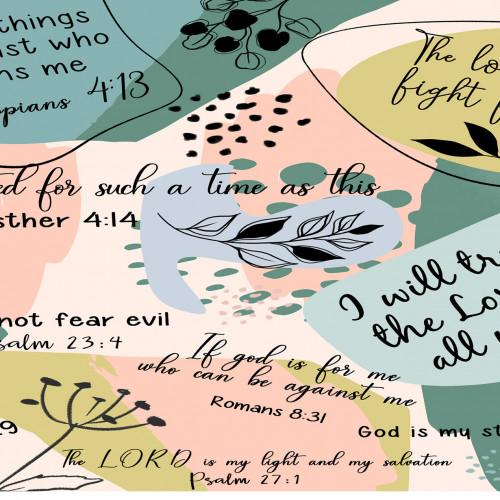 things
ist who
ns me
ppians 4:13
The lo
fight f
ed for such a time as this
sther 4:14
I will tr
the Lo
all
not fear evil
salm 23:4
If god is for me
who can be against me
Romans 8:31
9
God is my st
The LORD is my light and my salvation
Psalm 27:1